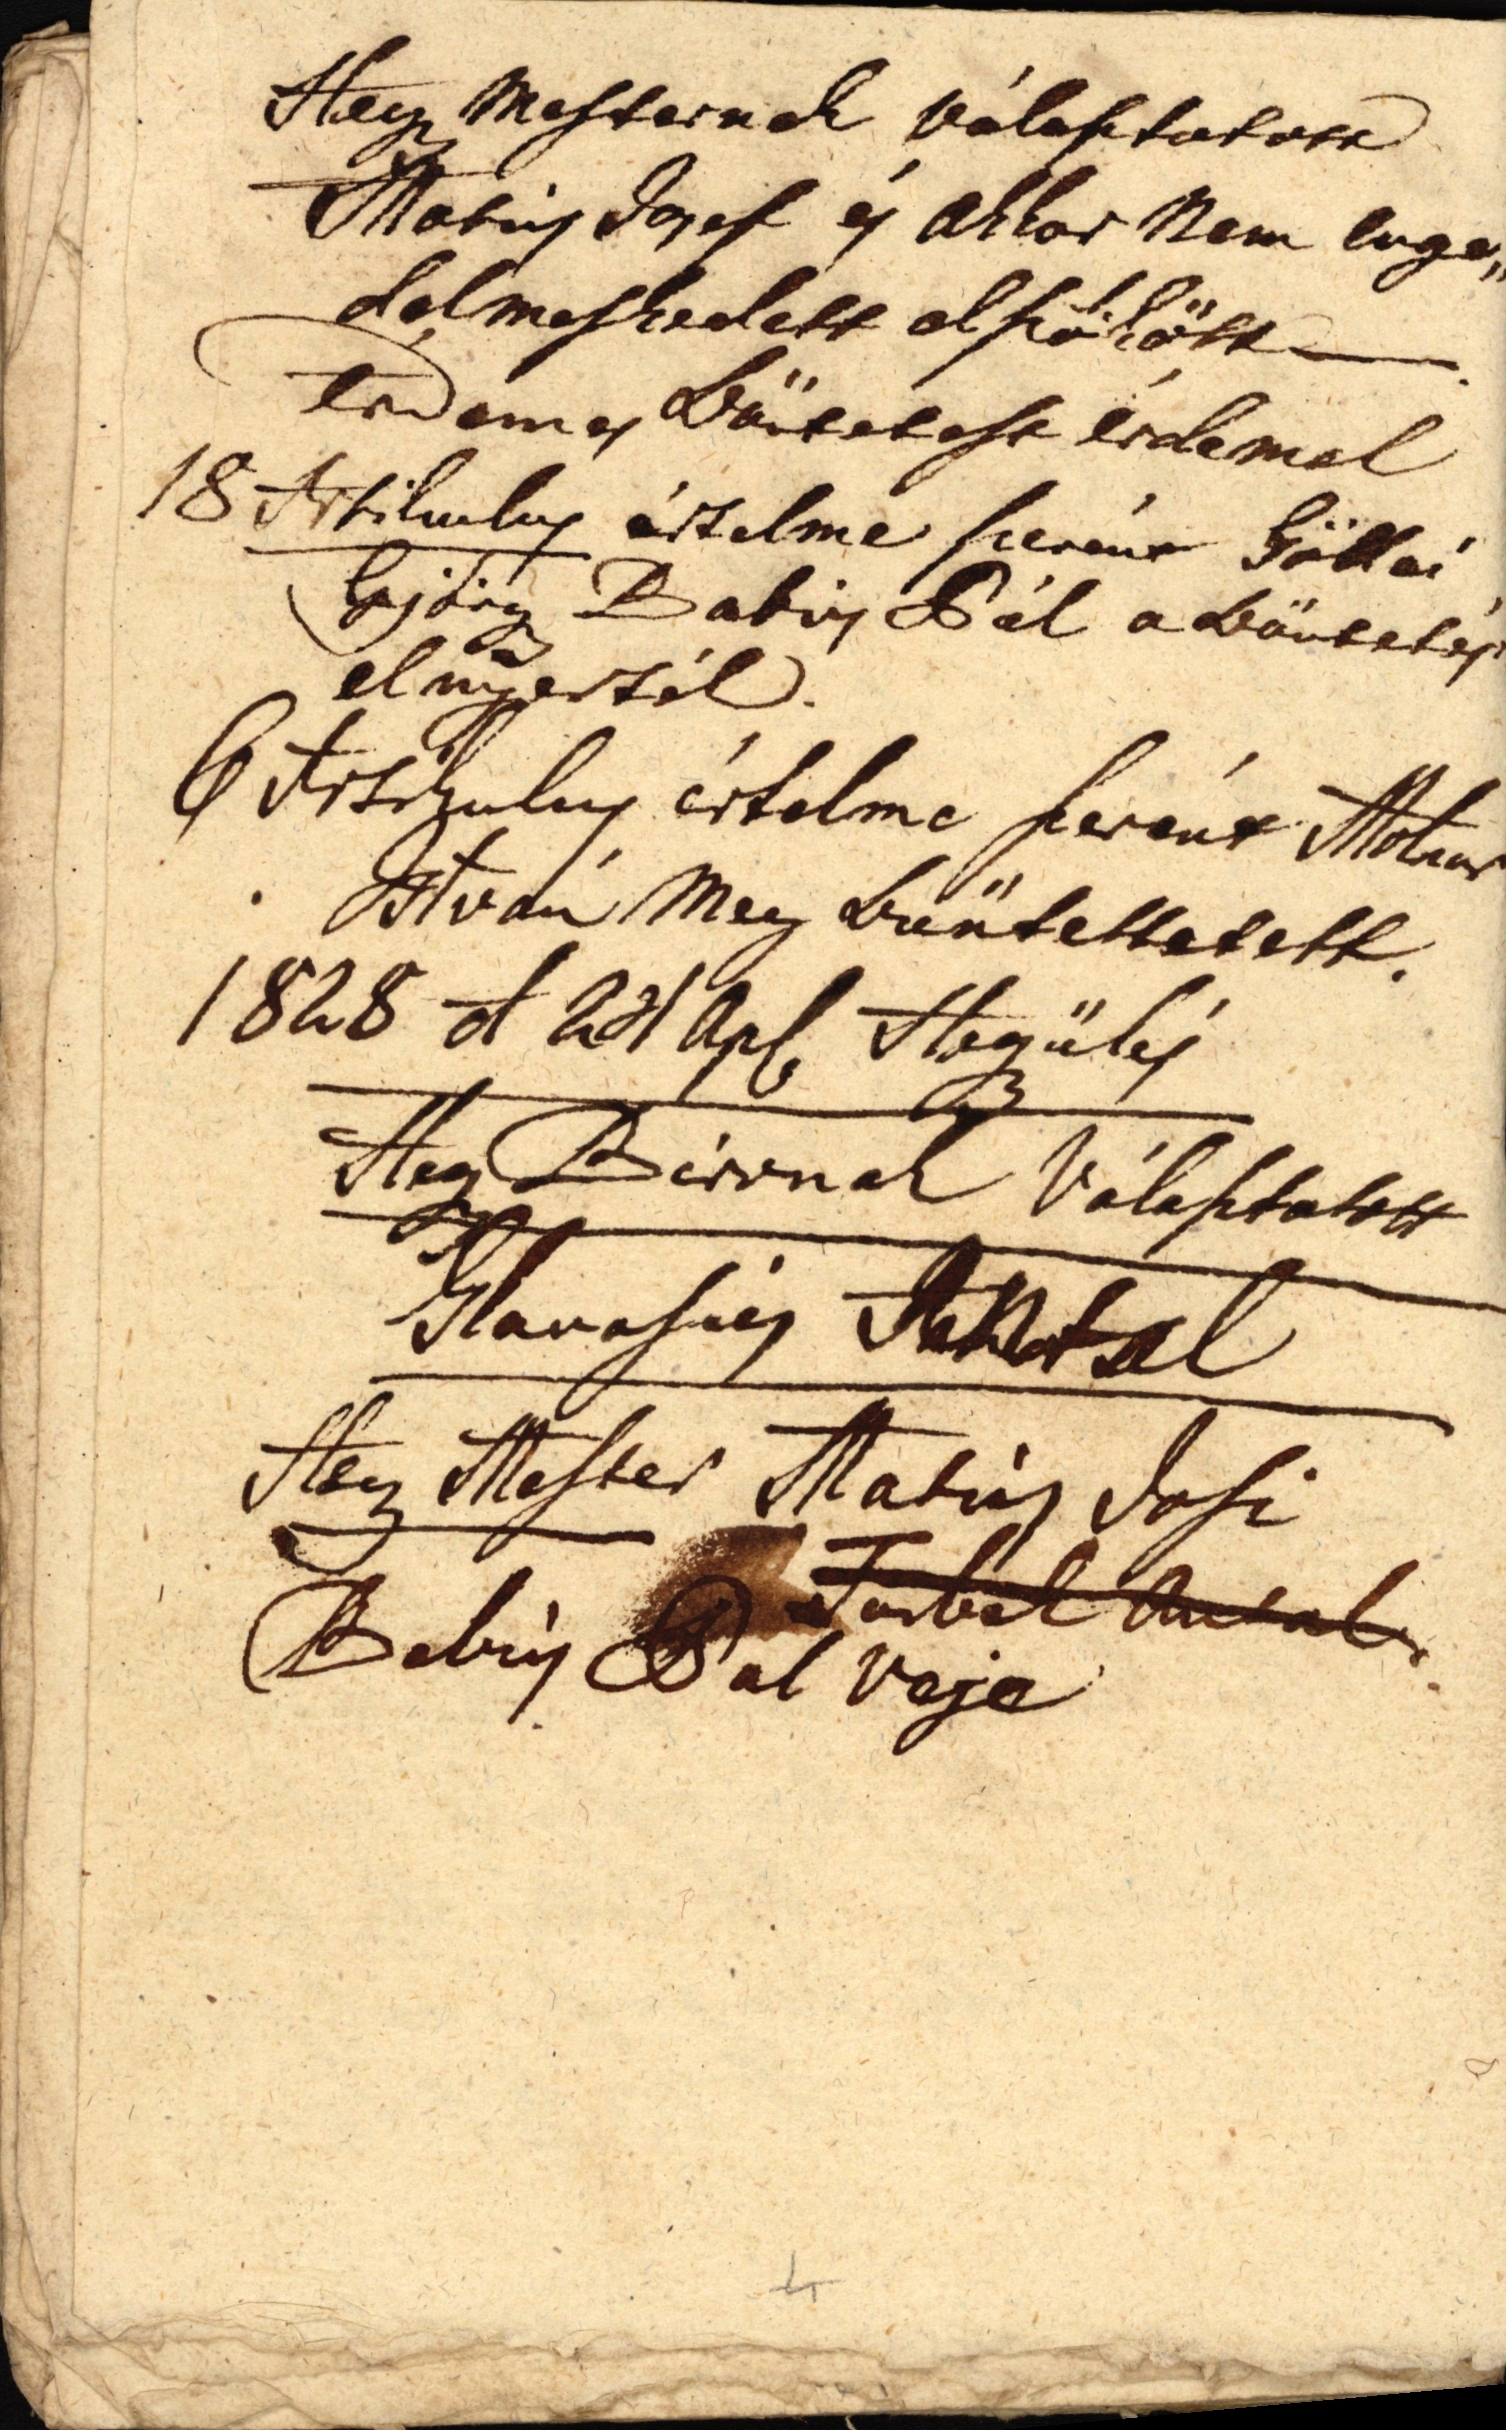 Hegy Mesternek Választatott
Matius Josef és akkor Nem enge„
delmeskedett elszökött
Erdemes Büntetest érdemel
18 Artikulus értelme szerént Göttei
György Babos Pál a büntetés
elnyerték.
6 Artikulus értelme szerént Molnar
István Meg büntettetett.
1828 d 24 Apl. Hegyülés
Hegy Birónak Választatott
Antal
Hegy Mester Matius Josi
Antal
Babos Pal Veje
4